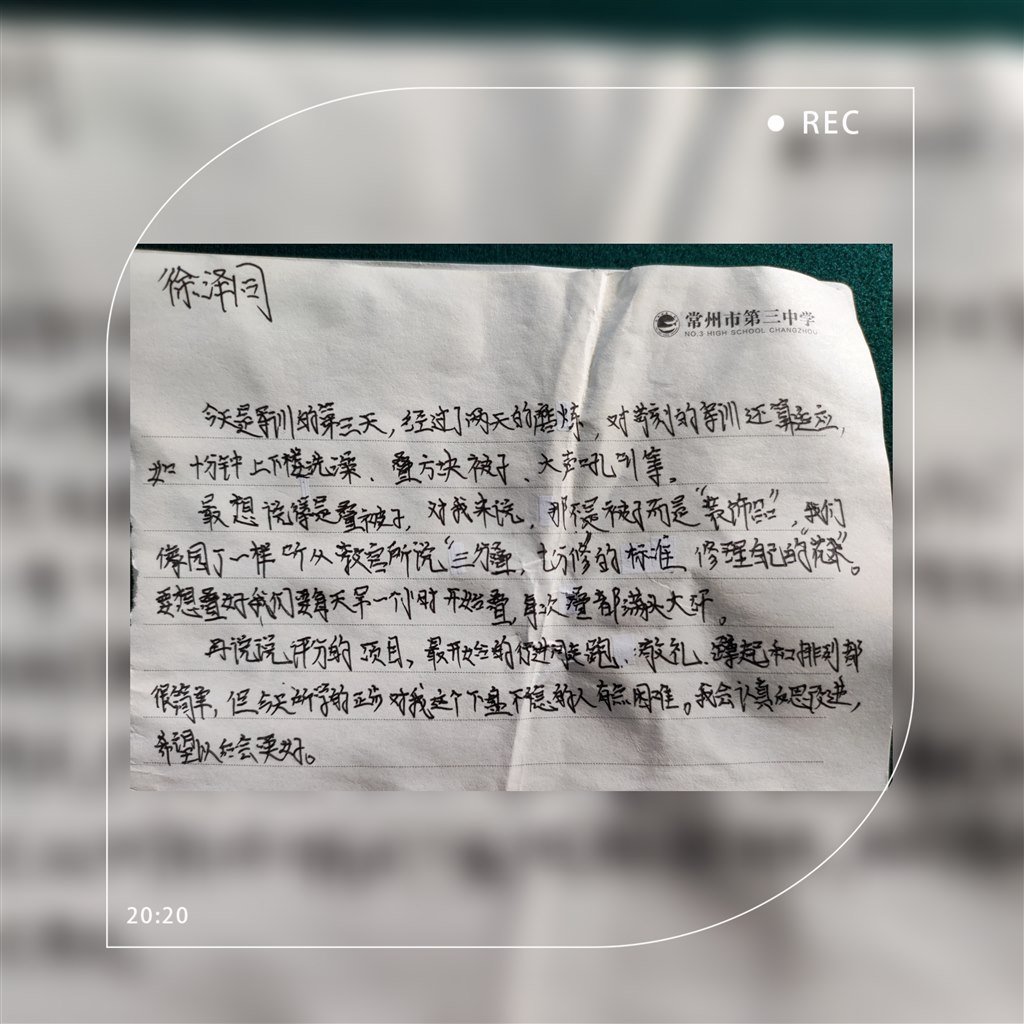 REC
徐泽同
常州市第三中学
NO.3 HIGH SCHOOL CHANGZHOU
今天是军训的第三天，经过了两天的磨炼，对苛刻的军训还算适应，
如十分钟上下楼洗澡、叠方块被子、大声吼叫等。
最想说得是叠被子，对我来说，那不是被子而是“装饰品”，我们
像园丁一样听从教官所说“三分叠，七分修”的标准，修理自己的“花木”。
要想叠好我们要每天早一个小时开始叠，每次叠都满头大汗。
再说说评分的项目，最开始的行进间跑、敬礼、蹲起和排列都
很简单，但今天所学的正步对我这个下盘不稳的人有点困难。我会认真反思改进，
希望以后会更好。
20:20